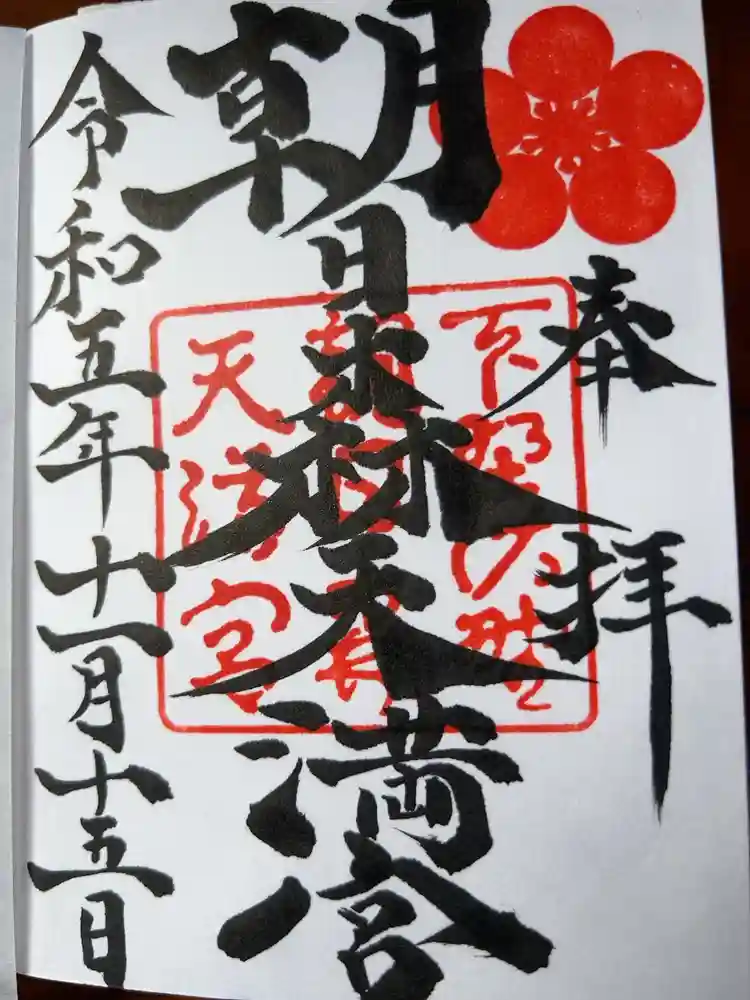 奉拝
朝日森天満宮
令和五年十一月十五日
下野佐野
天満宮